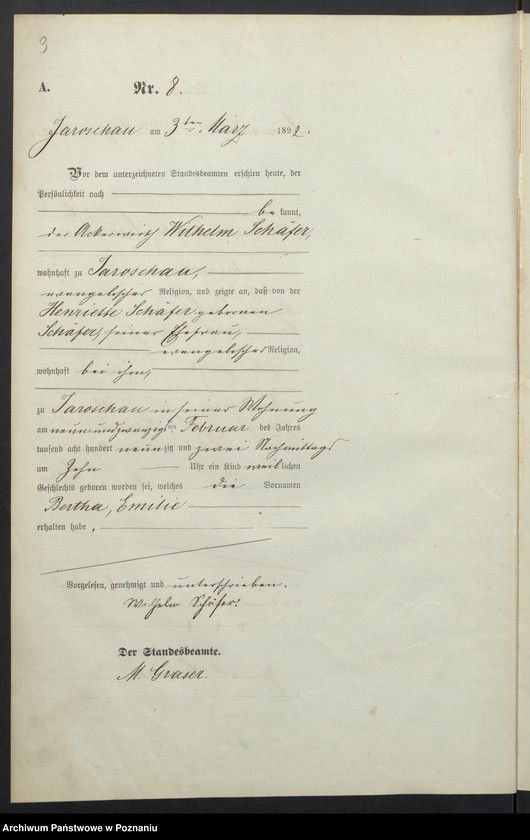 3
A. Nr. 8.
Jaroschau am 3ten März 1892.
Vor dem unterzeichneten Standesbeamten erschien heute, der
Persönlichkeit nach
bekannt,
der Ackerwirth Wilhelm Schäfer,
wohnhaft zu Jaroschau,
evangelischer Religion, und zeigte an, daß von der
Henriette Schäfer gebornen
Schäfer, seiner Ehefrau,
evangelischer Religion,
wohnhaft bei ihm,
zu Jaroschau in seiner Wohnung
am neun und zwanzigsten Februar des Jahres
tausend acht hundert neunzig und zwei Nachmittags
um Zehn Uhr ein Kind weiblichen
Geschlechts geboren worden sei, welches die Vornamen
Bertha, Emilie
erhalten habe.
Vorgelesen, genehmigt und unterschrieben.
Wilhelm Schäfer.
Der Standesbeamte.
M. Graser.
Archiwum Państwowe w Poznaniu